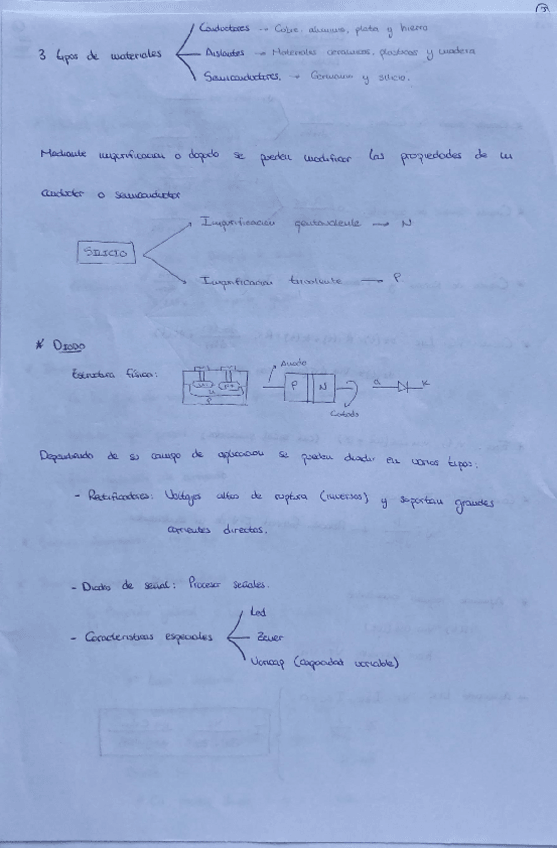 Conductores → Cobre, aluminio, plata y hierro
3 tipos de materiales
Aislantes → Materiales cerámicos, plásticos y madera
Semiconductores. → Germanio y silicio.
Mediante impurificación o dopado se pueden modificar las propiedades de un
conductor o semiconductor
Impurificación pentavalente → N
SILICIO
Impurificación trivalente → P
* DIODO
Ánodo
Estructura física:
P N
a K
Cátodo
Dependiendo de su campo de aplicación se pueden dividir en varios tipos:
- Rectificadores: Voltajes altos de ruptura (inversos) y soportan grandes
corrientes directos.
- Diodos de señal: Procesar señales.
Led
- Características especiales
Zener
Varicap (capacidad variable)